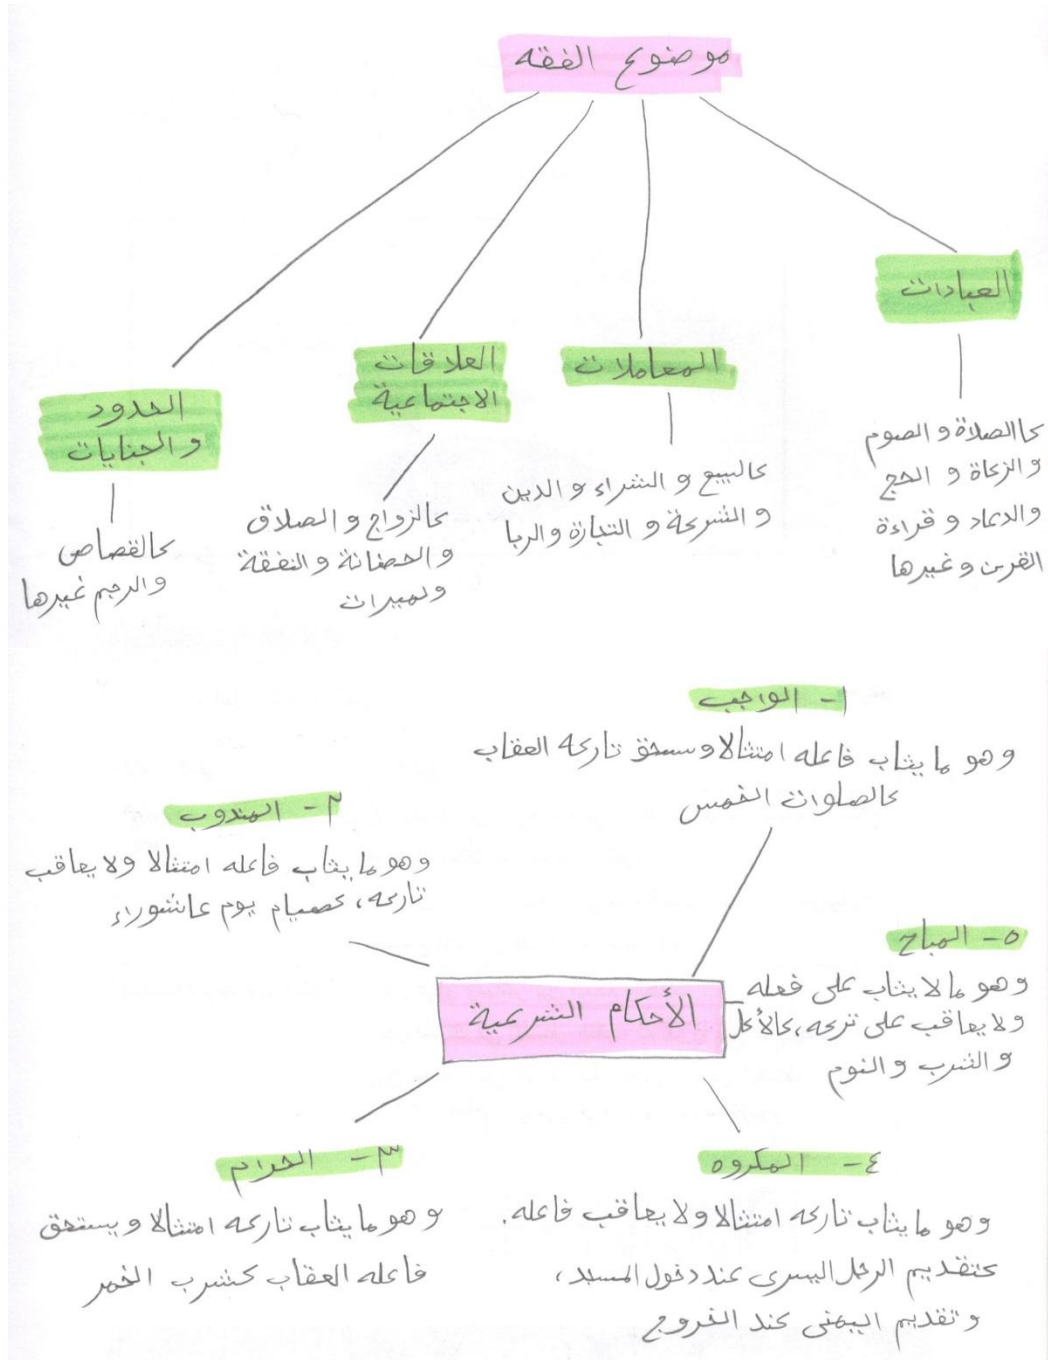 موضوع الفقه
العبادات
كالصلاة و الصوم
والزكاة و الحج
والدعاد و قراءة
القرىن و غيرها
المعاملات
كالبيع و الشراء و الدين
و الشركة و التجارة والربا
العلاقات
الاجتماعية
كالزواج و الصلاق
و الحضانة و النفقة
ولميرات
الحدود
و الجنايات
كالقصاص
و الرجم غيرها
١- الواجب
وهو ما يثاب فاعله امتثالا وسحق تاركه العقاب
كالصلوات الخمس
٢- المندوب
وهو ما يثاب فاعله امتثالا ولا يعاقب
تاركه، كصيام يوم عاشوراء
٥- المباح
وهو ما لا يثاب على فعله
ولا يعاقب على تركه، كالأكل
و الشرب و النوم
الأحكام الشرعية
٣- الحرام
وهو ما يثاب تاركه امتثالا ويستحق
فاعله العقاب كشرب الخمر
٤- المكروه
وهو ما يثاب تاركه امتثالا ولا يعاقب فاعله.
كتقديم الرجل اليسرى عند دخول المسجد،
وتقديم اليمنى عند الخروج